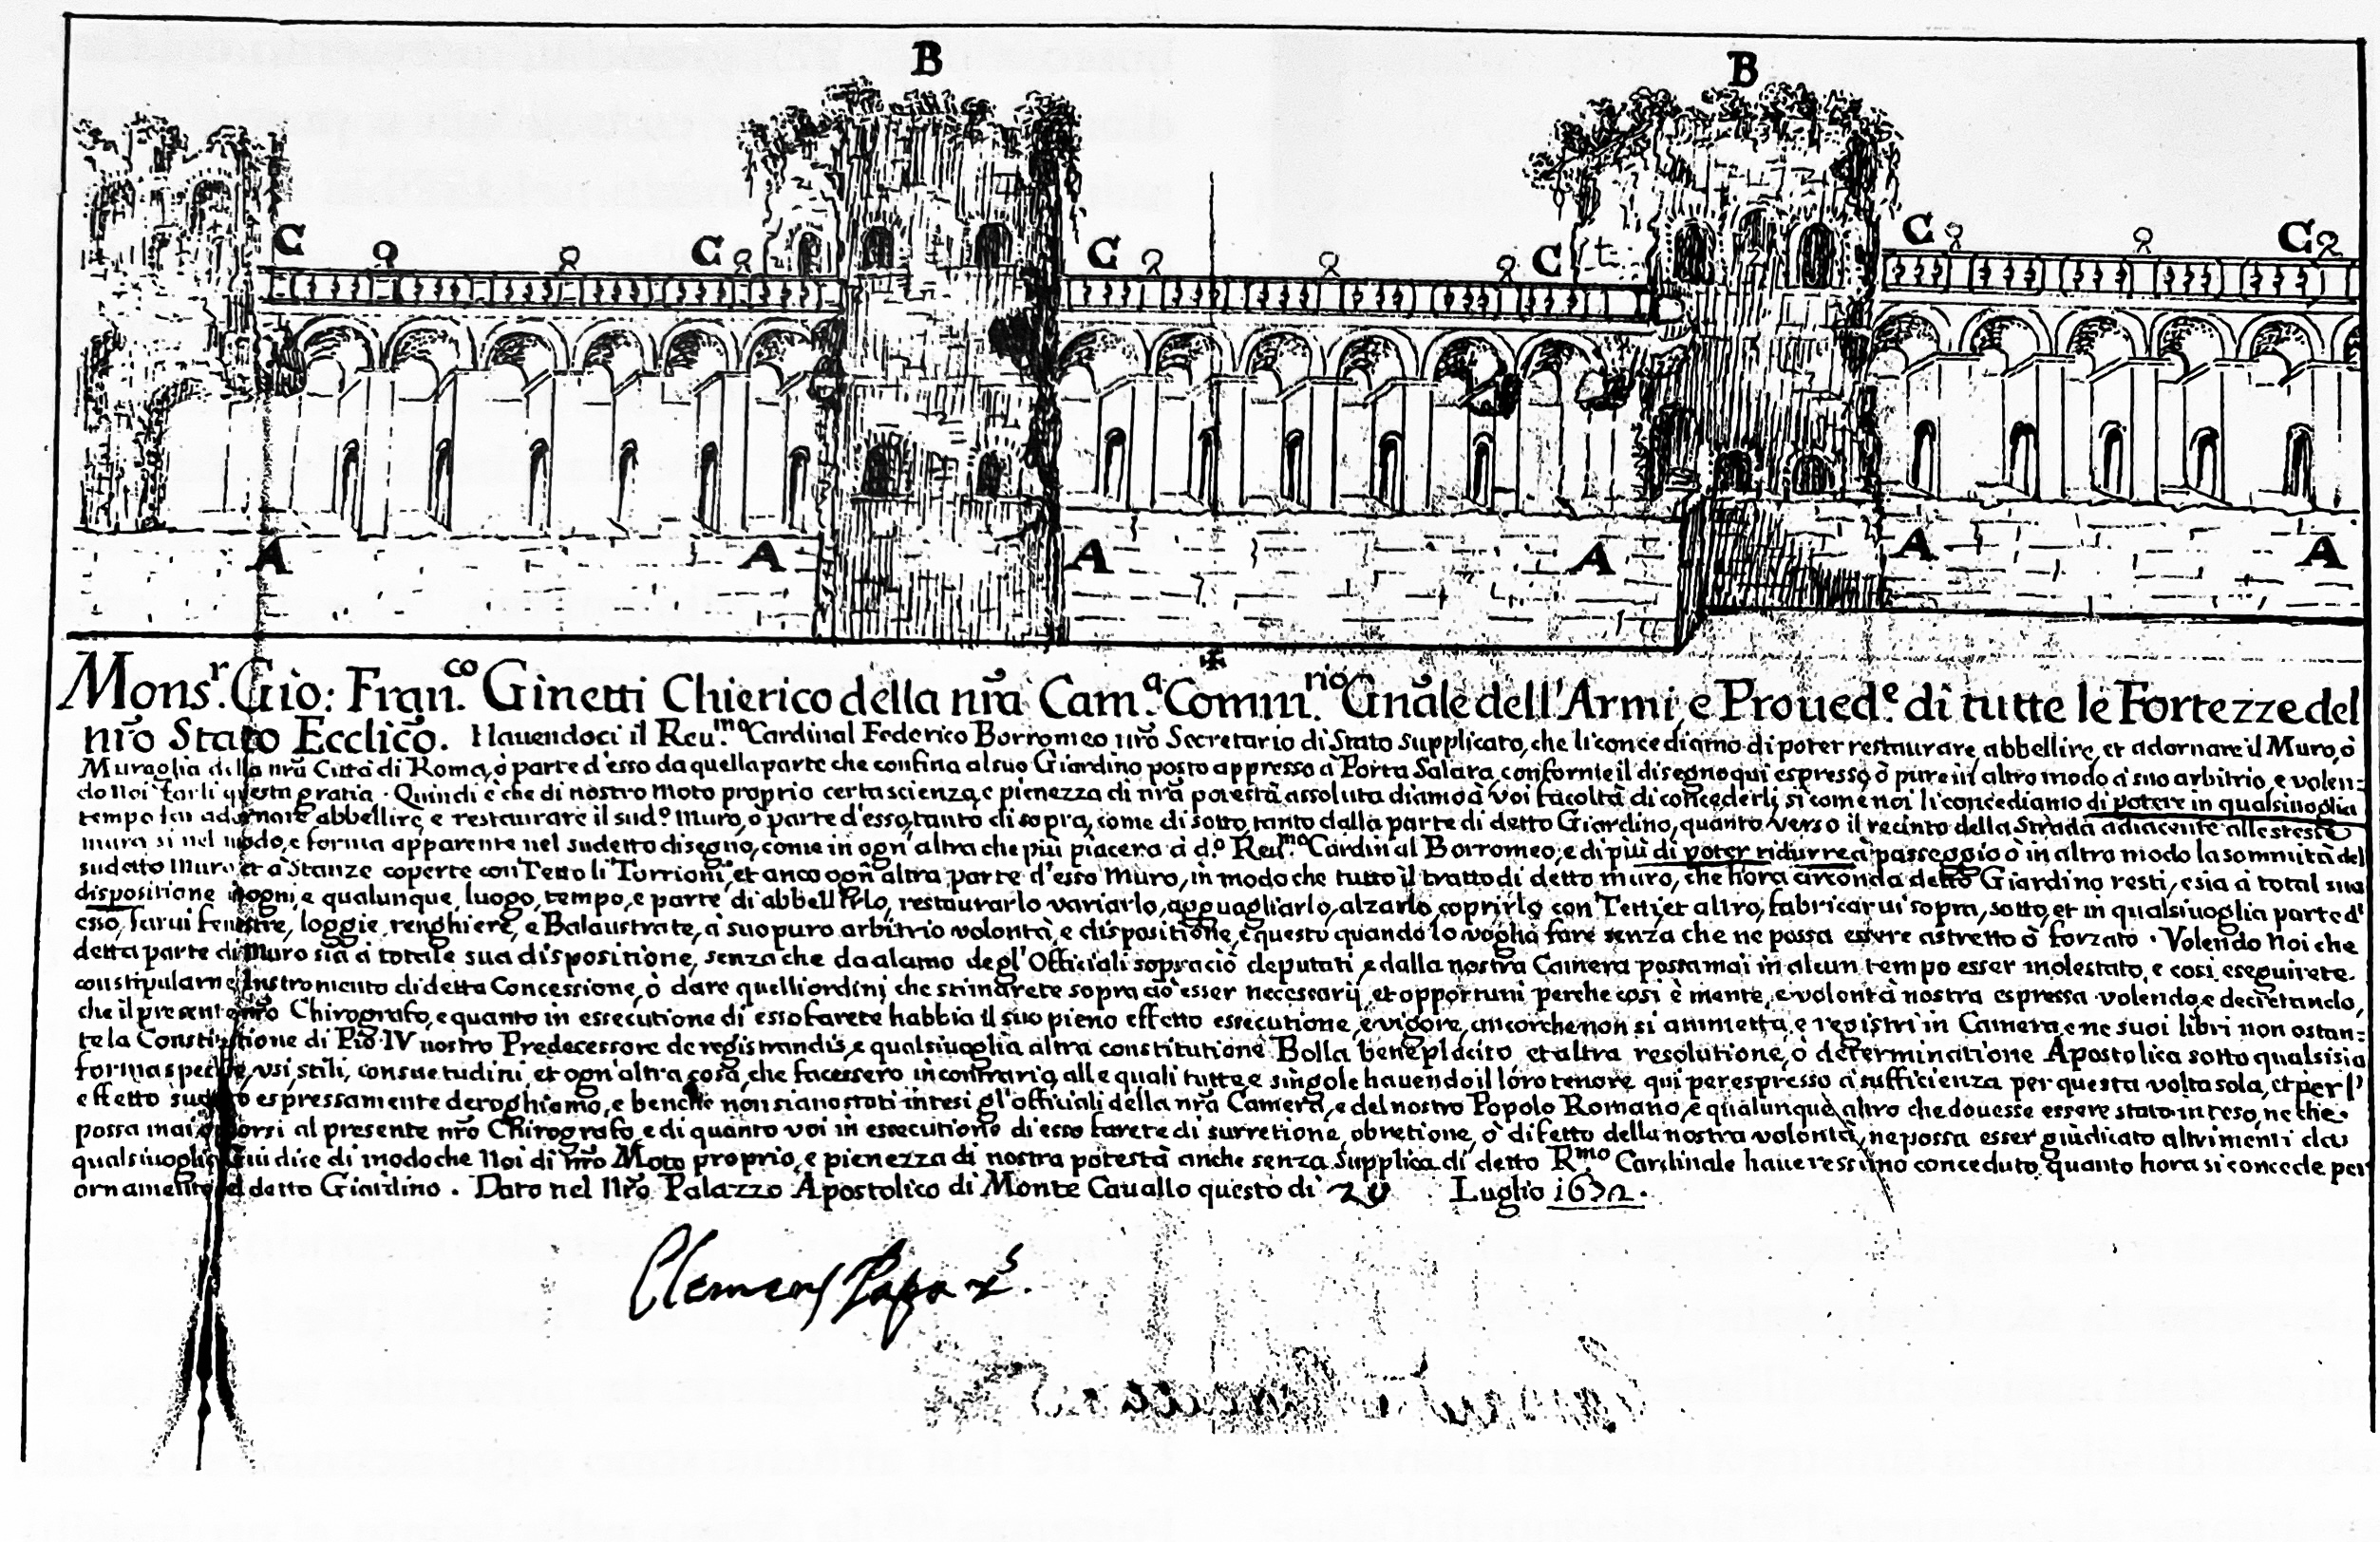 B B
C C C C C C
A A A A A A
Monsr. Gio: Franco. Ginetti Chierico della nrã Cama. Commrio. Gnãle dell'Armi, e Proued.e di tutte le Fortezze del
nrõ Stato Ecclicõ. Hauendoci il Reu.mo Cardinal Federico Borromeo nrõ Secretario di Stato supplicato, che li concediamo di poter restaurare, abbellire, et adornare il Muro, ò
Muraglia della nrã Città di Roma, ò parte d'esso da quella parte che confina al suo Giardino posto appresso à Porta Salara, conforme il disegno qui espresso, ò pure in altro modo à suo arbitrio, e volen:
do noi farli questa gratia. Quindi è che di nostro moto proprio certa scienza, e pienezza di nrã potestà assoluta diamo à voi facoltà di concederli, si come noi li concediamo di potere in qualsiuoglia
tempo far adornare abbellire, e restaurare il sud.o muro, ò parte d'esso, tanto di sopra, come di sotto, tanto dalla parte di detto Giardino, quanto verso il recinto della Strada adiacente alle stesse
mura si nel modo, e forma apparente nel sudetto disegno, come in ogn'altra che più piacerà à d.o Reu.mo Cardinal Borromeo, e di più di poter ridurre à passeggio ò in altro modo la sommità del
sudetto Muro et à Stanze coperte con Tetto li Torrioni, et anco ogn'altra parte d'esso muro, in modo che tutto il tratto di detto muro, che hora circonda detto Giardino resti, e sia à total sua
dispositione in ogni, e qualunque luogo, tempo, e parte di abbellirlo, restaurarlo variarlo, agguagliarlo, alzarlo, coprirlo con Tetti, et altro, fabricarui sopra, sotto, et in qualsiuoglia parte d'
esso, farui fenestre, loggie, renghiere, e Balaustrate, à suo puro arbitrio volontà, e dispositione, e questo quando lo voglia fare senza che ne possa essere astretto ò forzato. Volendo Noi che
detta parte di Muro sia à totale sua dispositione, senza che da alcuno degl'Officiali sopra ciò deputati, e dalla nostra Camera possa mai in alcun tempo esser molestato, e cosi eseguirete.
con stipularne Instromento di detta Concessione, ò dare quelli ordini, che stimarete sopra ciò esser necessarij, et opportuni perche cosi è mente, e volontà nostra espressa volendo, e decretando,
che il presente nrõ Chirografo, e quanto in essecutione di esso farete habbia il suo pieno effetto essecutione, e vigore, ancorche non si ammetta, e registri in Camera, e ne suoi libri non ostan:
te la Constitutione di Pio IV nostro Predecessore de registrandis, e qualsiuoglia altra constitutione Bolla beneplacito et altra resolutione, ò determinatione Apostolica sotto qualsisia
forma specie, vsi, stili, consuetudini, et ogn'altra cosa, che facessero in contrario, alle quali tutte, e singole hauendo il loro tenore qui per espresso à sufficienza per questa volta sola, et per l'
effetto sudetto espressamente deroghiamo, e benche non siano stati intesi gl'officiali della nrã Camera, e del nostro Popolo Romano, e qualunque altro che douesse essere stato inteso, ne che
possa mai opporsi al presente nrõ Chirografo, e di quanto voi in essecutione di esso farete di surretione, obretione, ò difetto della nostra volontà, ne possa esser giudicato altrimenti da
qualsiuoglia Giudice di modo che Noi di nrõ Moto proprio, e pienezza di nostra potestà anche senza supplica di detto R.mo Cardinale haueressimo conceduto quanto hora si concede per
ornamento del detto Giardino. Dato nel Nrõ Palazzo Apostolico di Monte Cauallo questo di Luglio 1672.
Clemens Papa xs.